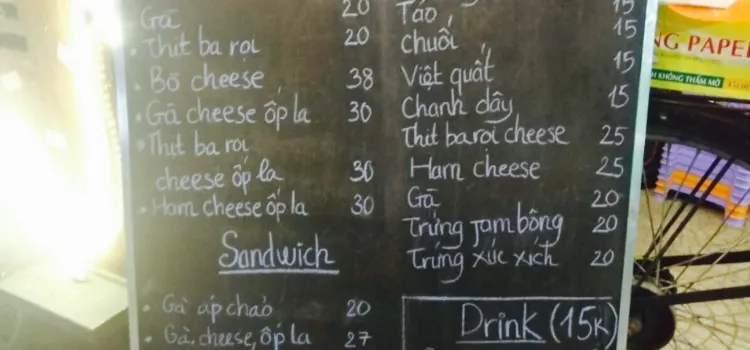 Gà 20
• Thịt ba rọi 20
• Bò cheese 38
• Gà cheese ốp la 30
• Thịt ba rọi
cheese ốp la 30
• Ham cheese ốp la 30
Sandwich
• Gà áp chảo 20
• Gà, cheese, ốp la 27
Táo 15
Chuối 15
Việt quất 15
Chanh dây 15
Thịt ba rọi cheese 25
Ham cheese 25
Gà 20
Trứng Jambông 20
Trứng xúc xích 20
Drink (15k)
NG PAPE
KHÔNG THẤM MỠ